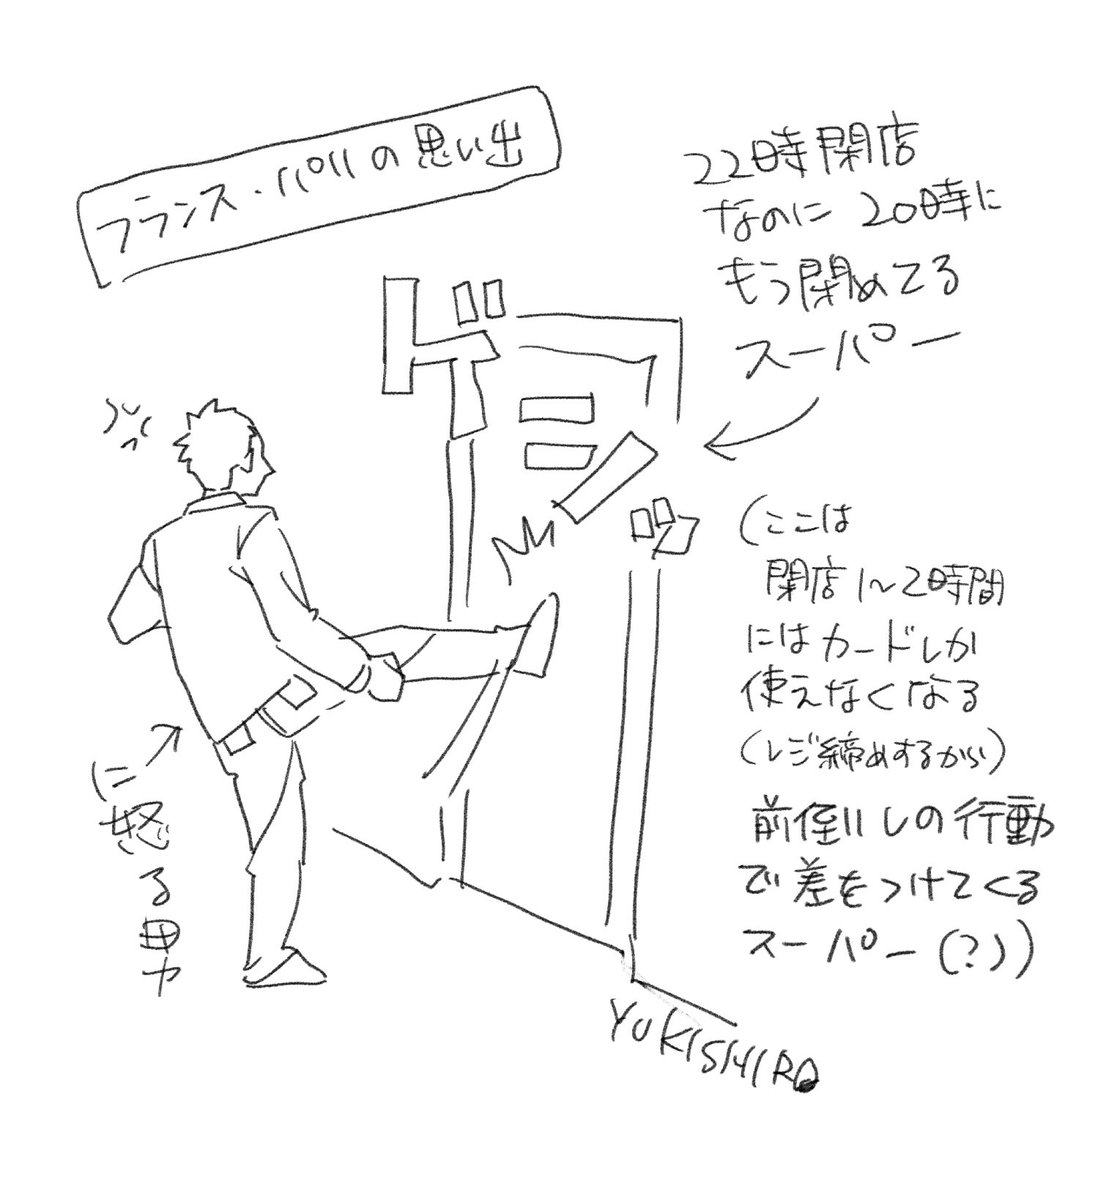 フランス・パリの思い出
22時閉店
なのに20時に
もう閉めてる
スーパー
ドゴーン
ドゴ
(ここは
閉店1〜2時間
にはカードしか
使えなくなる
(レジ締めするから)
前倒しの行動
で差をつけてくる
スーパー(?))
に怒る男
YUKISHIRO